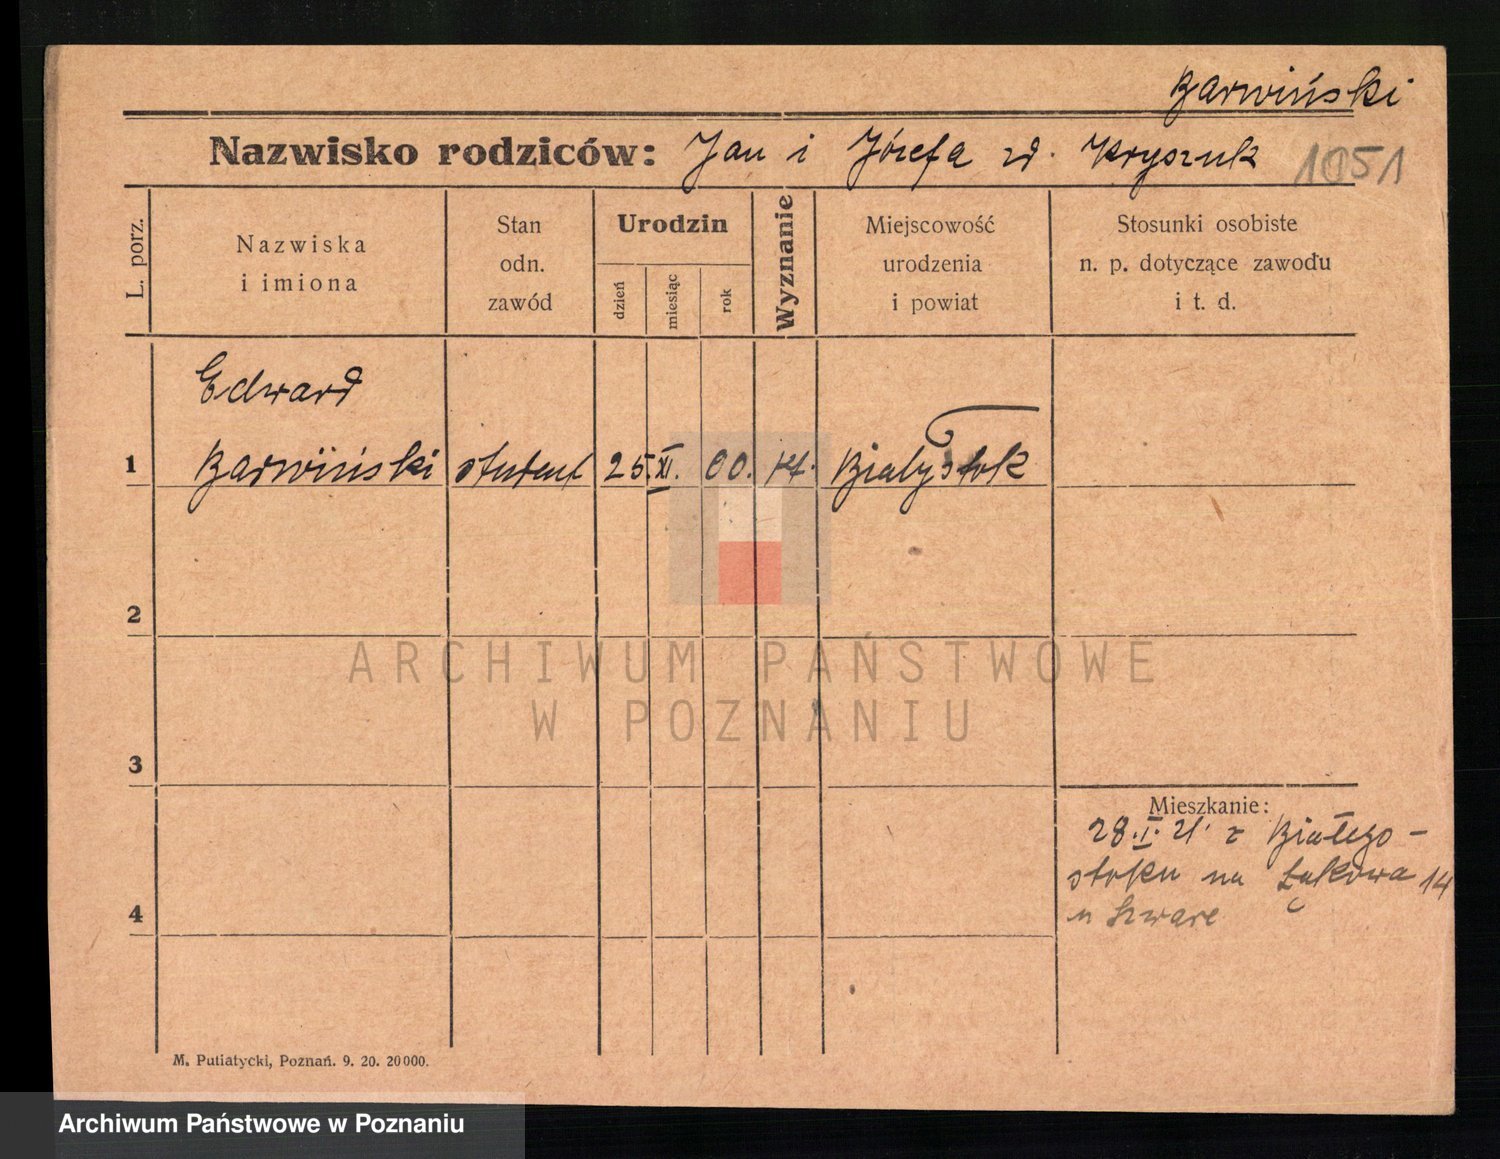 Barwiński
Nazwisko rodziców: Jan i Józefa zd. Kryszuk 1051
L. porz.
Nazwiska
i imiona
Stan
odn.
zawód
Urodzin
dzień
miesiąc
rok
Wyznanie
Miejscowość
urodzenia
i powiat
Stosunki osobiste
n. p. dotyczące zawodu
i t. d.
Edward
1 Barwiński student 25. XI. 00. kt. Białystok
2
ARCHIWUM PAŃSTWOWE
W POZNANIU
3
Mieszkanie:
28.I.21. z Białego-
stoku na Łąkowa 14
u Szware
4
M. Putiatycki, Poznań. 9. 20. 20000.
Archiwum Państwowe w Poznaniu